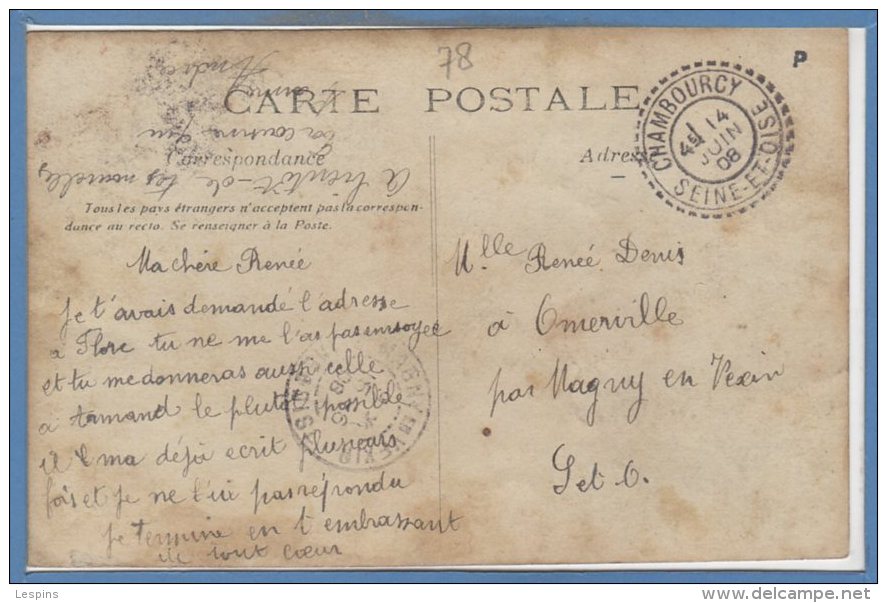 78
P
CARTE POSTALE
Correspondance
Adresse
Tous les pays étrangers n'acceptent pas la correspon-
dance au recto. Se renseigner à la Poste.
CHAMBOURCY
14
JUIN
08
SEINE-ET-OISE
A bientôt de tes nouvelles
Ma chère Renée
Je t'avais demandé l'adresse
a Flore tu ne me l'as pas envoyée
et tu me donneras aussi celle
a Armand le plutot possible
il ma déjà ecrit plusieurs
fois et je ne l'ui pas répondu
Je termine en t'embrassant
de tout cœur
Mlle Renée Denis
à Omerville
par Magny en Vexin
S et O.
MAGNY-EN-VEXIN
Lespins
www.delcampe.net